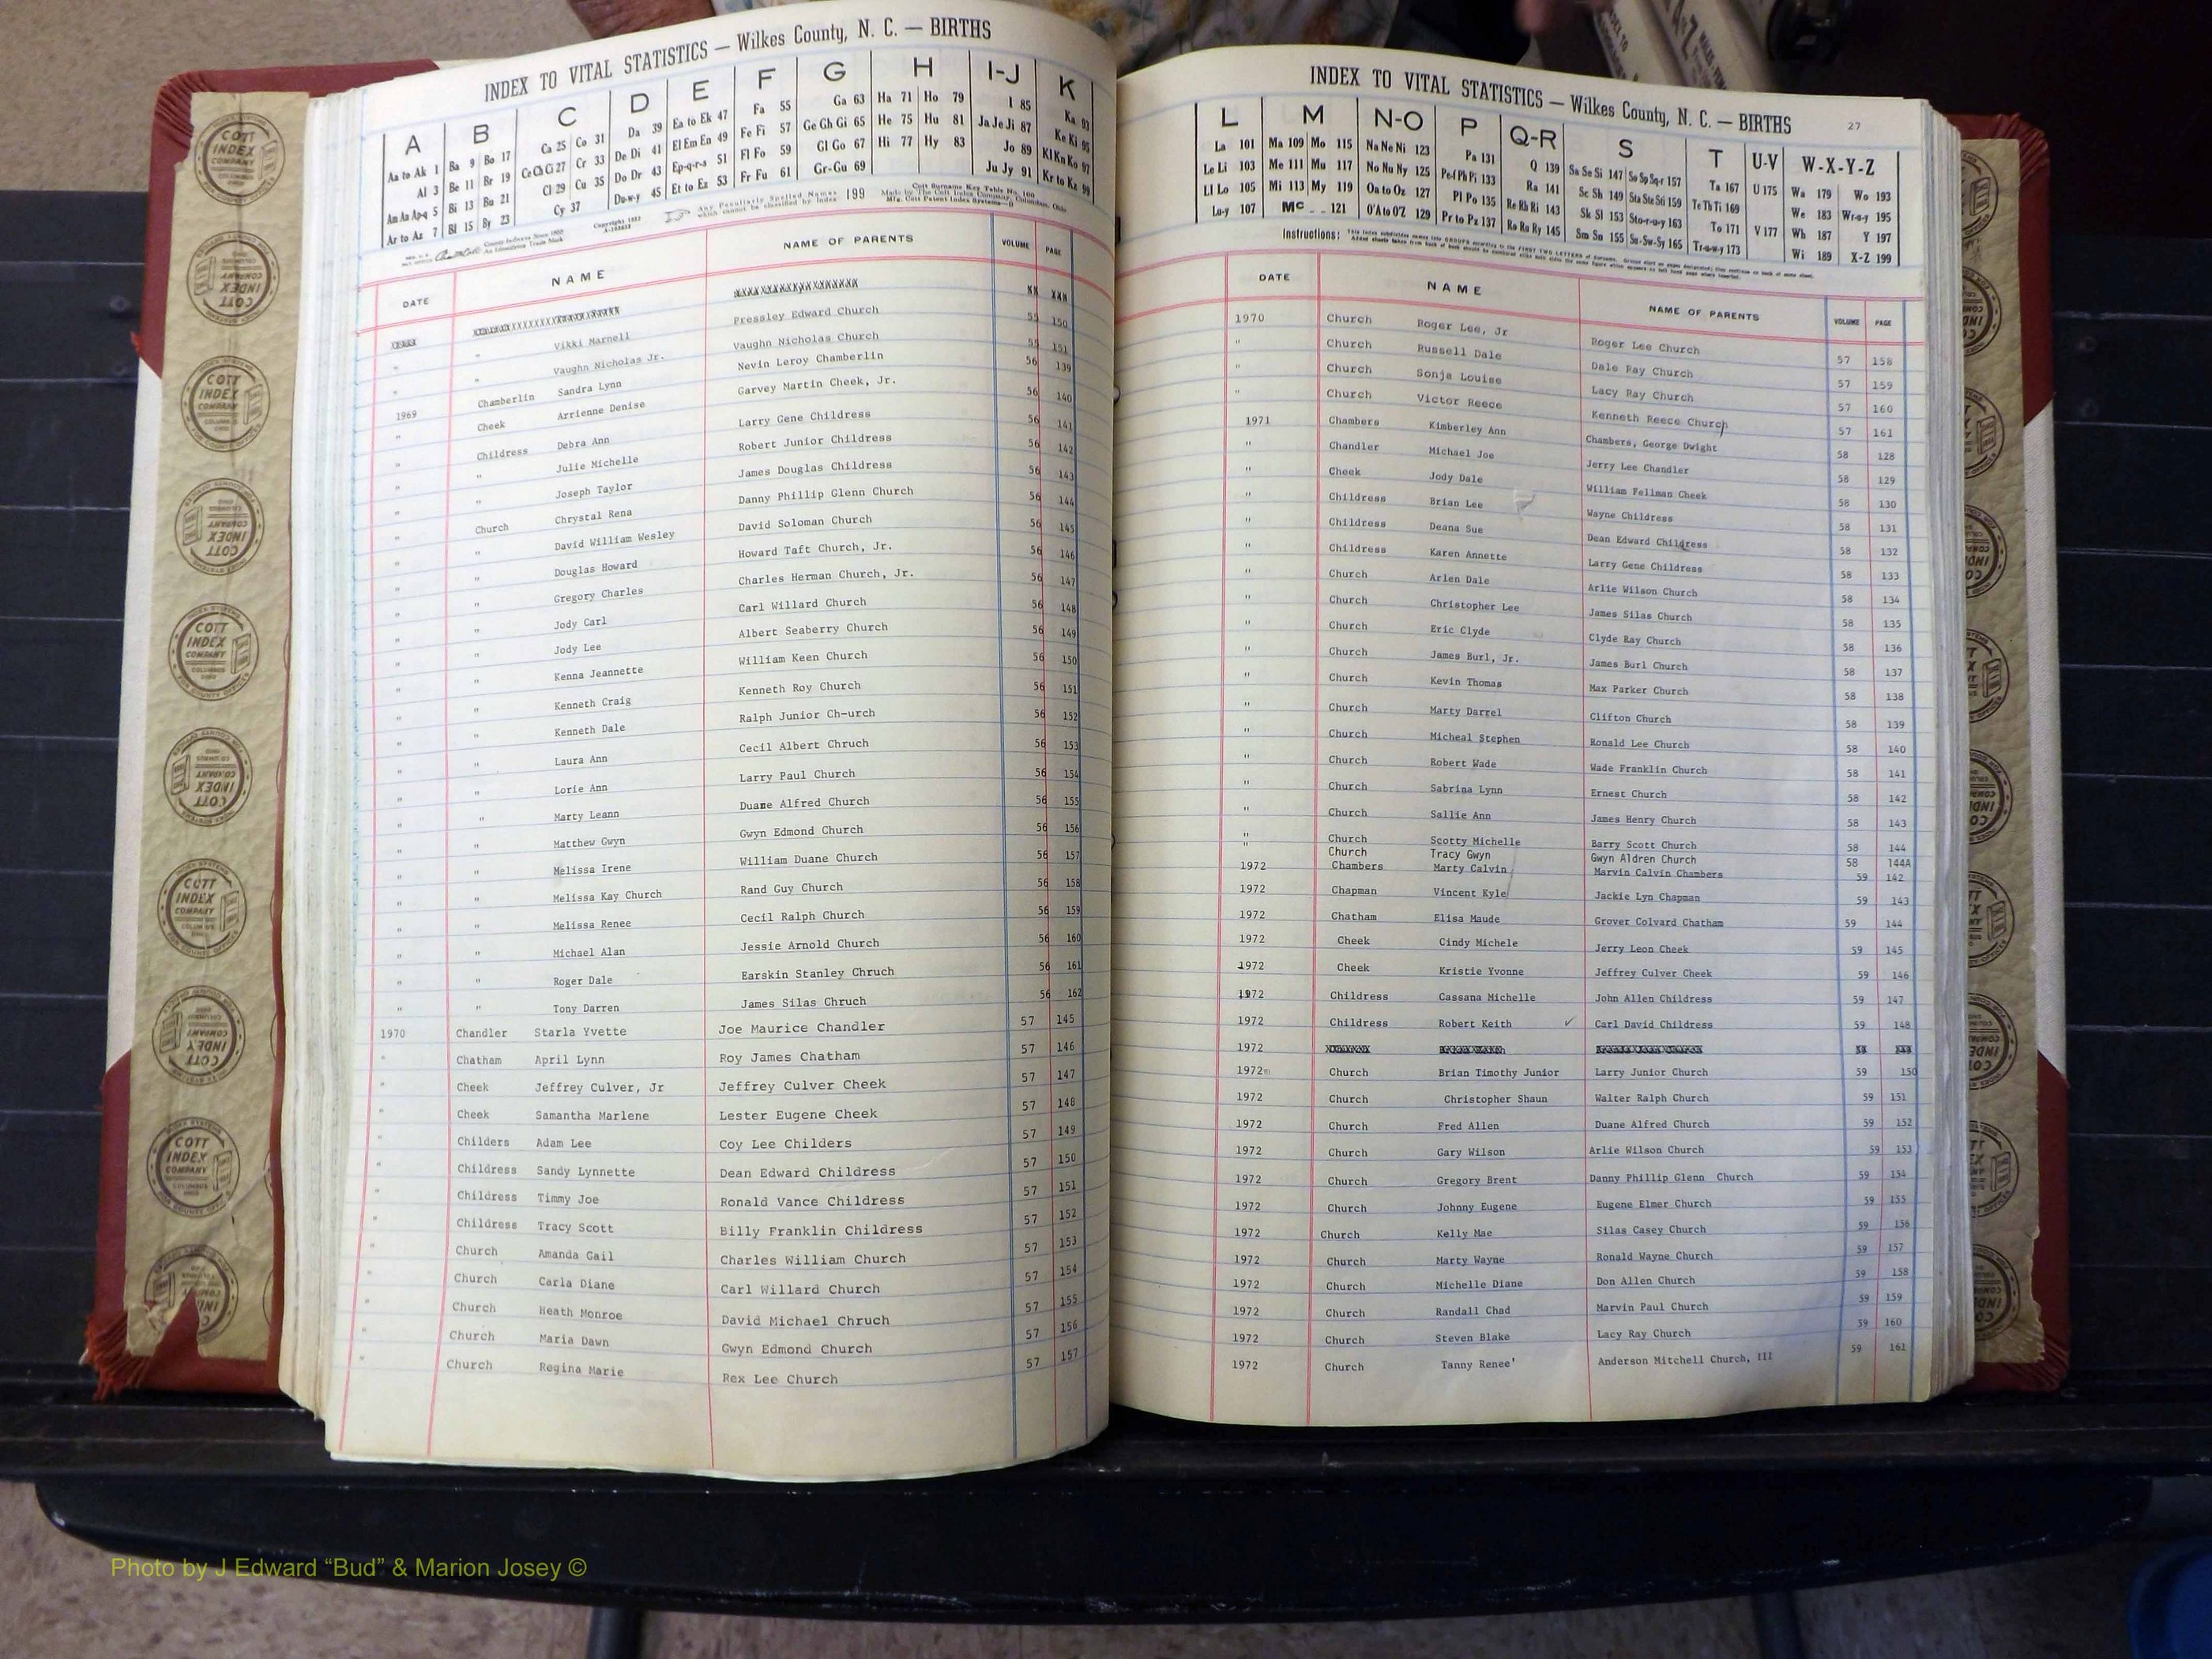 INDEX TO VITAL STATISTICS — Wilkes County, N. C. — BIRTHS
A B C D E F G H I-J K
Aa to Ak 1 Ba 9 Bo 17 Ca 25 Co 31 Da 39 Ea to Ek 47 Fa 55 Ga 63 Ha 71 Ho 79 I 85 Ka 93
Al 3 Be 11 Br 19 Ce Ch Ci 27 Cr 33 De Di 41 El Em En 49 Fe Fi 57 Ge Gh Gi 65 He 75 Hu 81 Ja Je Ji 87 Ke Ki 95
Am An Ap-q 5 Bi 13 Bu 21 Cl 29 Cu 35 Do Dr 43 Ep-q-r-s 51 Fl Fo 59 Gl Go 67 Hi 77 Hy 83 Jo 89 Kl Kn Ko 97
Ar to Az 7 Bl 15 By 23 Cy 37 Du-w-y 45 Et to Ez 53 Fr Fu 61 Gr-Gu 69 Ju Jy 91 Kr to Kz 99
Any Peculiarly Spelled Names which cannot be classified by index 199
DATE NAME NAME OF PARENTS VOLUME PAGE
" " Vikki Marnell Pressley Edward Church 55 150
" " Vaughn Nicholas Jr. Vaughn Nicholas Church 55 151
1969 Chamberlin Sandra Lynn Nevin Leroy Chamberlin 56 139
" Cheek Arrienne Denise Garvey Martin Cheek, Jr. 56 140
" Childress Debra Ann Larry Gene Childress 56 141
" " Julie Michelle Robert Junior Childress 56 142
" " Joseph Taylor James Douglas Childress 56 143
" Church Chrystal Rena Danny Phillip Glenn Church 56 144
" " David William Wesley David Soloman Church 56 145
" " Douglas Howard Howard Taft Church, Jr. 56 146
" " Gregory Charles Charles Herman Church, Jr. 56 147
" " Jody Carl Carl Willard Church 56 148
" " Jody Lee Albert Seaberry Church 56 149
" " Kenna Jeannette William Keen Church 56 150
" " Kenneth Craig Kenneth Roy Church 56 151
" " Kenneth Dale Ralph Junior Ch-urch 56 152
" " Laura Ann Cecil Albert Chruch 56 153
" " Lorie Ann Larry Paul Church 56 154
" " Marty Leann Duane Alfred Church 56 155
" " Matthew Gwyn Gwyn Edmond Church 56 156
" " Melissa Irene William Duane Church 56 157
" " Melissa Kay Church Rand Guy Church 56 158
" " Melissa Renee Cecil Ralph Church 56 159
" " Michael Alan Jessie Arnold Church 56 160
" " Roger Dale Earskin Stanley Chruch 56 161
" " Tony Darren James Silas Chruch 56 162
1970 Chandler Starla Yvette Joe Maurice Chandler 57 145
" Chatham April Lynn Roy James Chatham 57 146
" Cheek Jeffrey Culver, Jr Jeffrey Culver Cheek 57 147
" Cheek Samantha Marlene Lester Eugene Cheek 57 148
" Childers Adam Lee Coy Lee Childers 57 149
" Childress Sandy Lynnette Dean Edward Childress 57 150
" Childress Timmy Joe Ronald Vance Childress 57 151
" Childress Tracy Scott Billy Franklin Childress 57 152
" Church Amanda Gail Charles William Church 57 153
" Church Carla Diane Carl Willard Church 57 154
" Church Heath Monroe David Michael Chruch 57 155
" Church Maria Dawn Gwyn Edmond Church 57 156
" Church Regina Marie Rex Lee Church 57 157
INDEX TO VITAL STATISTICS — Wilkes County, N. C. — BIRTHS 27
L M N-O P Q-R S T U-V W-X-Y-Z
La 101 Ma 109 Mo 115 Na Ne Ni 123 Pa 131 Q 139 Sa Se Si 147 So Sp Sq-r 157 Ta 167 U 175 Wa 179 Wo 193
Le Li 103 Me 111 Mu 117 No Nu Ny 125 Pe-f Ph Pi 133 Ra 141 Sc Sh 149 Sta Ste Sti 159 Te Th Ti 169 We 183 Wr-u-y 195
Ll Lo 105 Mi 113 My 119 Oa to Oz 127 Pl Po 135 Re Rh Ri 143 Sk Sl 153 Sto-r-u-y 163 To 171 V 177 Wh 187 Y 197
Lu-y 107 Mc 121 O'A to O'Z 129 Pr to Pz 137 Ro Ru Ry 145 Sm Sn 155 Su-Sw-Sy 165 Tr-u-w-y 173 Wi 189 X-Z 199
Instructions:
DATE NAME NAME OF PARENTS VOLUME PAGE
1970 Church Roger Lee, Jr Roger Lee Church 57 158
" Church Russell Dale Dale Ray Church 57 159
" Church Sonja Louise Lacy Ray Church 57 160
" Church Victor Reece Kenneth Reece Church 57 161
1971 Chambers Kimberley Ann Chambers, George Dwight 58 128
" Chandler Michael Joe Jerry Lee Chandler 58 129
" Cheek Jody Dale William Fellman Cheek 58 130
" Childress Brian Lee Wayne Childress 58 131
" Childress Deana Sue Dean Edward Childress 58 132
" Childress Karen Annette Larry Gene Childress 58 133
" Church Arlen Dale Arlie Wilson Church 58 134
" Church Christopher Lee James Silas Church 58 135
" Church Eric Clyde Clyde Ray Church 58 136
" Church James Burl, Jr. James Burl Church 58 137
" Church Kevin Thomas Max Parker Church 58 138
" Church Marty Darrel Clifton Church 58 139
" Church Micheal Stephen Ronald Lee Church 58 140
" Church Robert Wade Wade Franklin Church 58 141
" Church Sabrina Lynn Ernest Church 58 142
" Church Sallie Ann James Henry Church 58 143
" Church Scotty Michelle Barry Scott Church 58 144
" Church Tracy Gwyn Gwyn Aldren Church 58 144A
1972 Chambers Marty Calvin Marvin Calvin Chambers 59 142
1972 Chapman Vincent Kyle Jackie Lyn Chapman 59 143
1972 Chatham Elisa Maude Grover Colvard Chatham 59 144
1972 Cheek Cindy Michele Jerry Leon Cheek 59 145
1972 Cheek Kristie Yvonne Jeffrey Culver Cheek 59 146
1972 Childress Cassana Michelle John Allen Childress 59 147
1972 Childress Robert Keith ✓ Carl David Childress 59 148
1972
1972 Church Brian Timothy Junior Larry Junior Church 59 150
1972 Church Christopher Shaun Walter Ralph Church 59 151
1972 Church Fred Allen Duane Alfred Church 59 152
1972 Church Gary Wilson Arlie Wilson Church 59 153
1972 Church Gregory Brent Danny Phillip Glenn Church 59 154
1972 Church Johnny Eugene Eugene Elmer Church 59 155
1972 Church Kelly Mae Silas Casey Church 59 156
1972 Church Marty Wayne Ronald Wayne Church 59 157
1972 Church Michelle Diane Don Allen Church 59 158
1972 Church Randall Chad Marvin Paul Church 59 159
1972 Church Steven Blake Lacy Ray Church 59 160
1972 Church Tanny Renee' Anderson Mitchell Church, III 59 161
Photo by J Edward “Bud” & Marion Josey ©